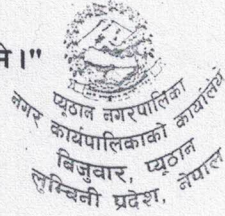 ने।"
प्यूठान नगरपालिका
नगर कार्यपालिकाको कार्यालय
बिजुवार, प्यूठान
लुम्बिनी प्रदेश, नेपाल